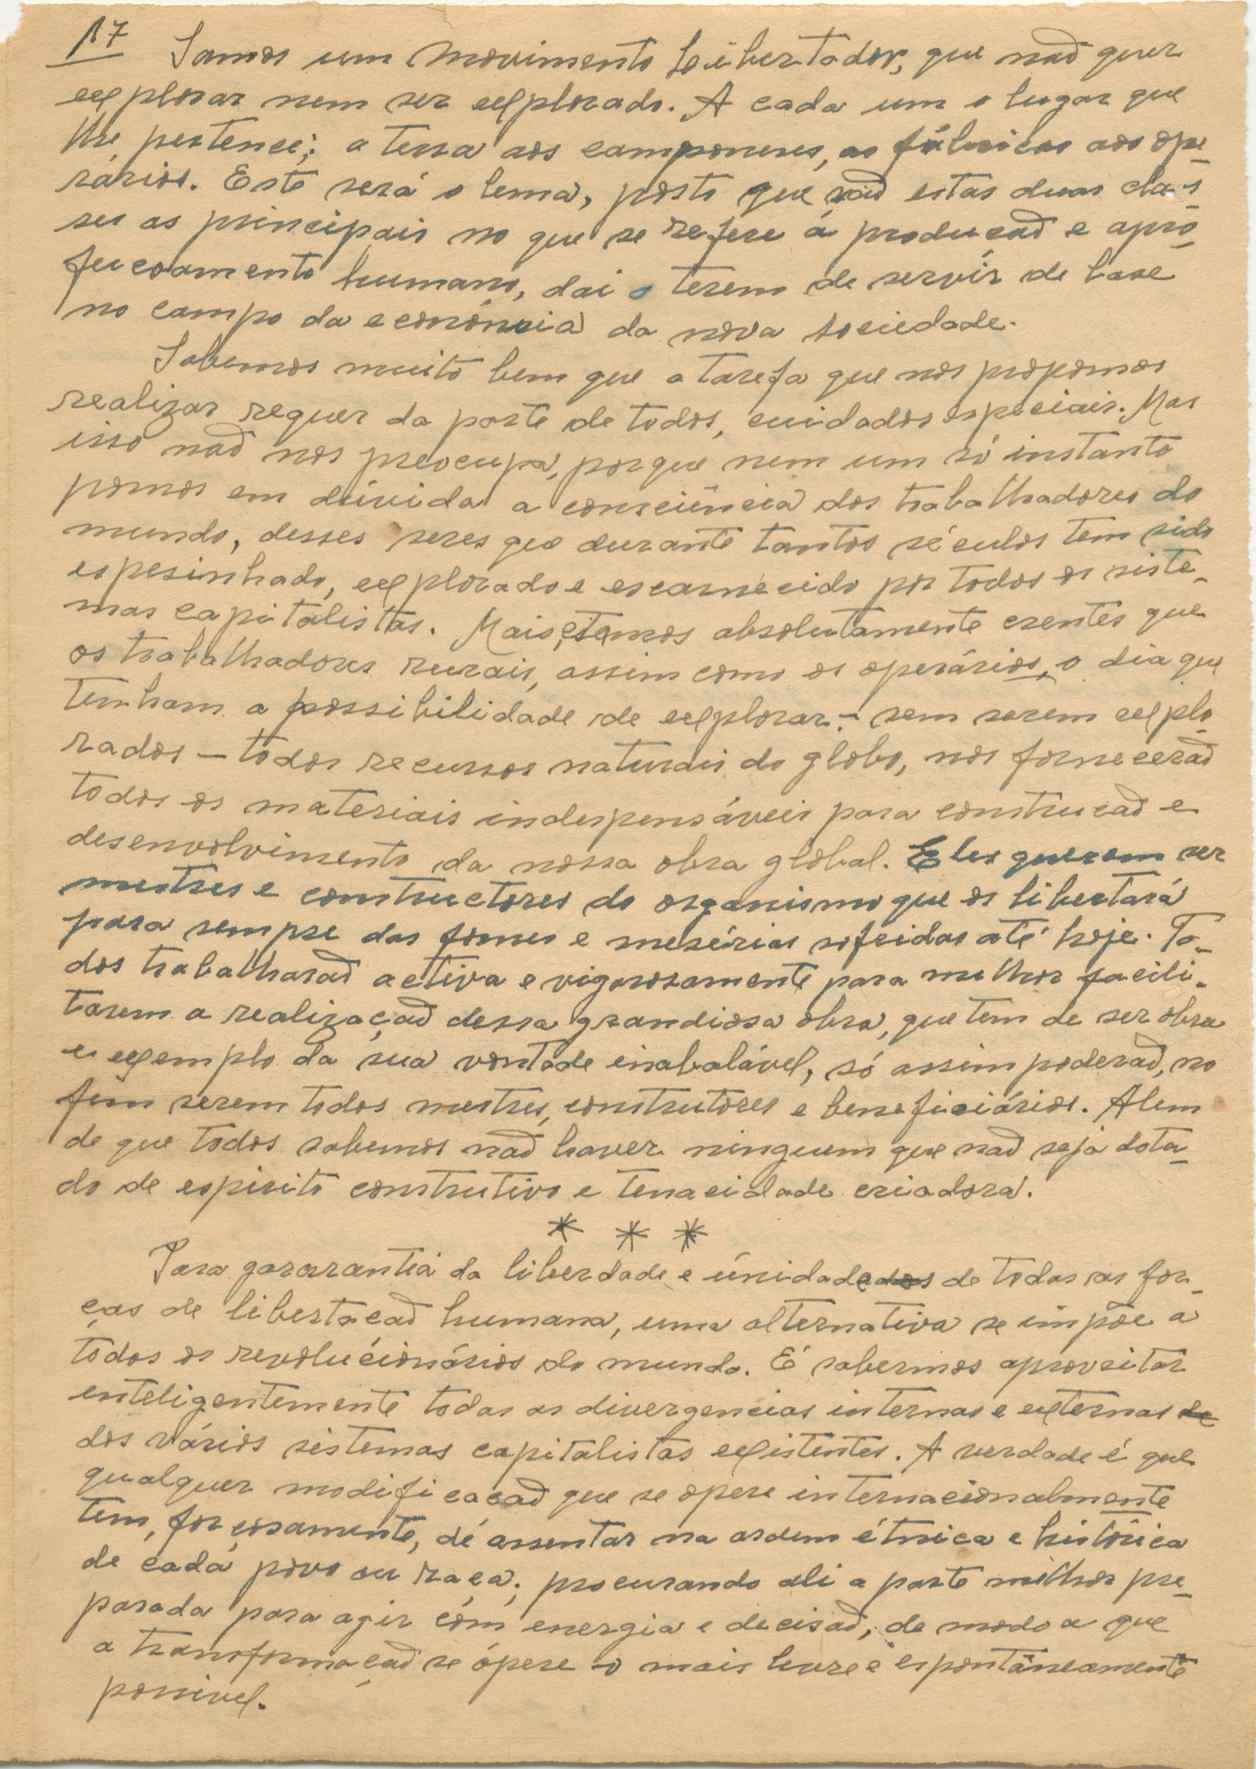 17 Somos um Movimento Leibertador, que não quer
explorar nem ser explorado. A cada um o lugar que
lhe pertence; a terra aos camponeses, as fábricas aos ope-
rários. Este será o lema, posto que são estas duas clas-
ses as principais no que se refere á producão e aper-
feicoamento humano, dai o terem de servir de base
no campo da economia da nova sociedade.
Sabemos muito bem que a tarefa que nos propomos
realizar requer da parte de todos, cuidados especiais. Mas
isso não nos preocupa, porque nem um só instante
pomos em dúvida a consciência dos trabalhadores do
mundo, desses seres que durante tantos séculos tem sido
espesinhado, explorado e escarnecido por todos os siste-
mas capitalistas. Mais, estamos absolutamente crentes que
os trabalhadores rurais, assim como os operários, o dia que
tenham a possibilidade de explorar - sem serem explo-
rados - todos recursos naturais do globo, nos fornecerão
todos os materiais indespensáveis para construcão e
desenvolvimento da nossa obra global. Eles querem ser
mestres e constructores do organismo que os libertará
para sempre das fomes e mesérias sofridas até hoje. To-
dos trabalharão activa e vigorosamente para melhor facili-
tarem a realização dessa grandiosa obra, que tem de ser obra
e exemplo da sua vontade inabalável, só assim poderão, no
fim serem todos mestres, construtores e beneficiários. Alem
de que todos sabemos não haver ninguem que não seja dota-
do de espirito construtivo e tenacidade criadora.
* * *
Para gararantia da liberdade e únidade de todas as for-
ças de libertação humana, uma alternativa se impõe a
todos os revolucionários do mundo. É sabermos aproveitar
enteligentemente todas as divergencias internas e externas de
dos vários sistemas capitalistas existentes. A verdade é que
qualquer modificacão que se opere internacionalmente
tem, forçosamente, de assentar na ordem étnica e histórica
de cada povo ou raça, procurando ali a parte melhor pre-
parada para agir com energia e decisão, de modo a que
a transformação se ópere o mais livre e espontâneamente
possivel.